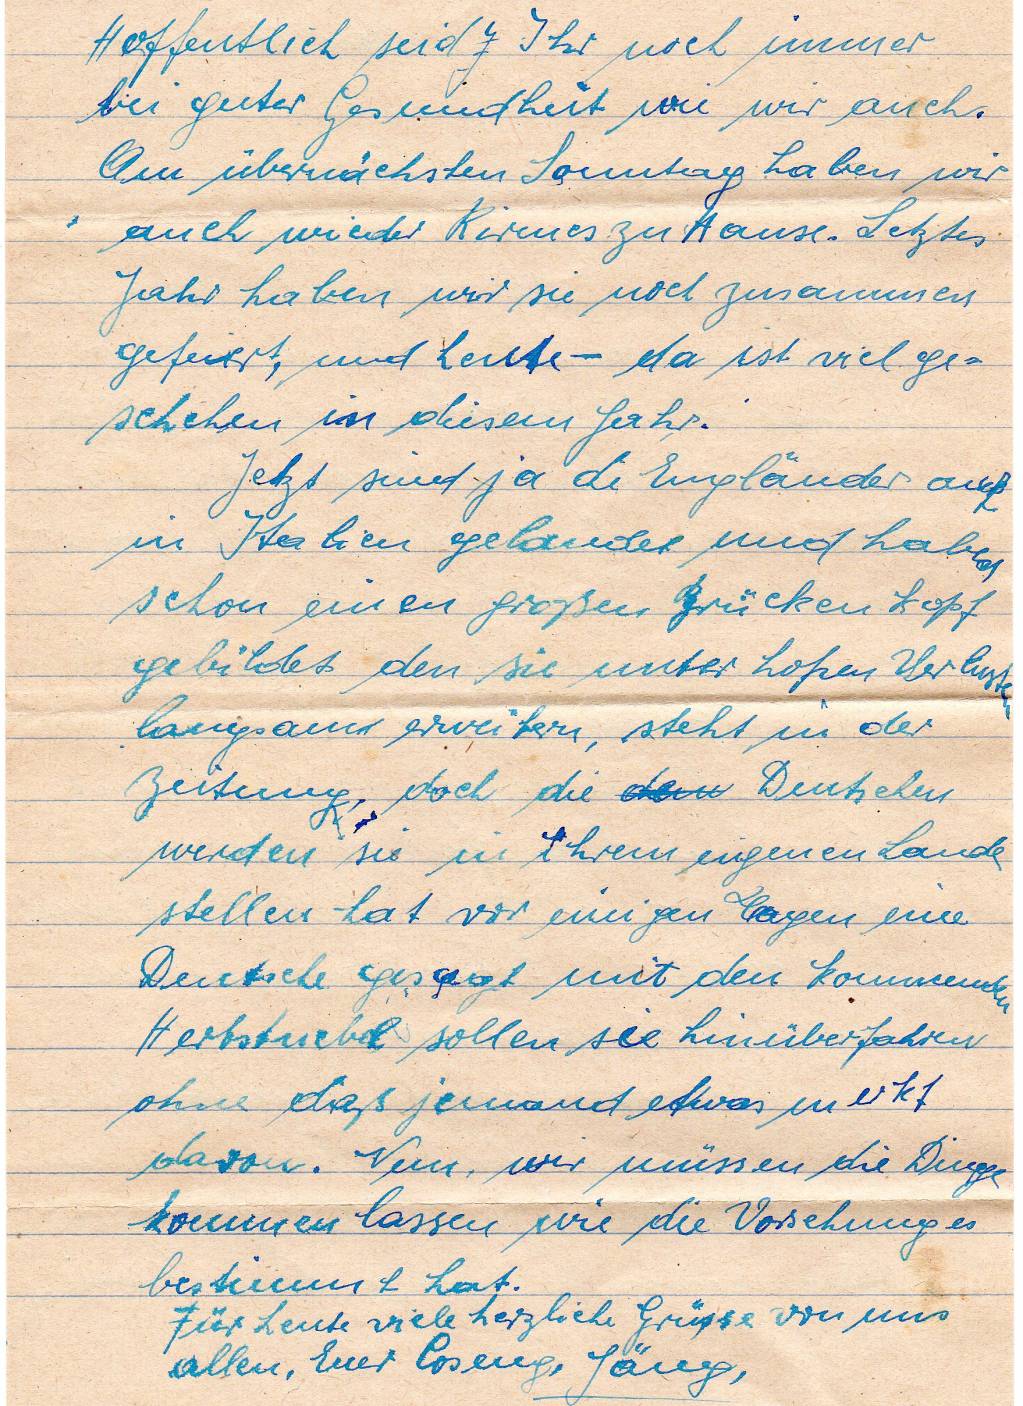 Hoffentlich seid Ihr noch immer
bei guter Gesundheit wie wir auch.
Am übernächsten Sonntag haben wir
auch wieder Kirmes zu Hause. Letztes
Jahr haben wir sie noch zusammen
gefeiert, und heute – da ist viel ge-
schehen in diesem Jahr.
Jetzt sind ja die Engländer auch
in Italien gelandet und haben
schon einen großen Brückenkopf
gebildet den sie unter hohen Verlusten
langsam erweitern, steht in der
Zeitung, doch die Deutschen
werden sie in Ihrem eigenen Lande
stellen hat vor einigen Tagen eine
Deutsche gesagt mit den kommenden
Herbstnebel sollen sie hinüberfahren
ohne daß jemand etwas merkt
davon. Nun, wir müssen die Dinge
kommen lassen wie die Vorsehung es
bestimmt hat.
Für heute viele herzliche Grüsse von uns
allen, Euer Coseng, Jäng,